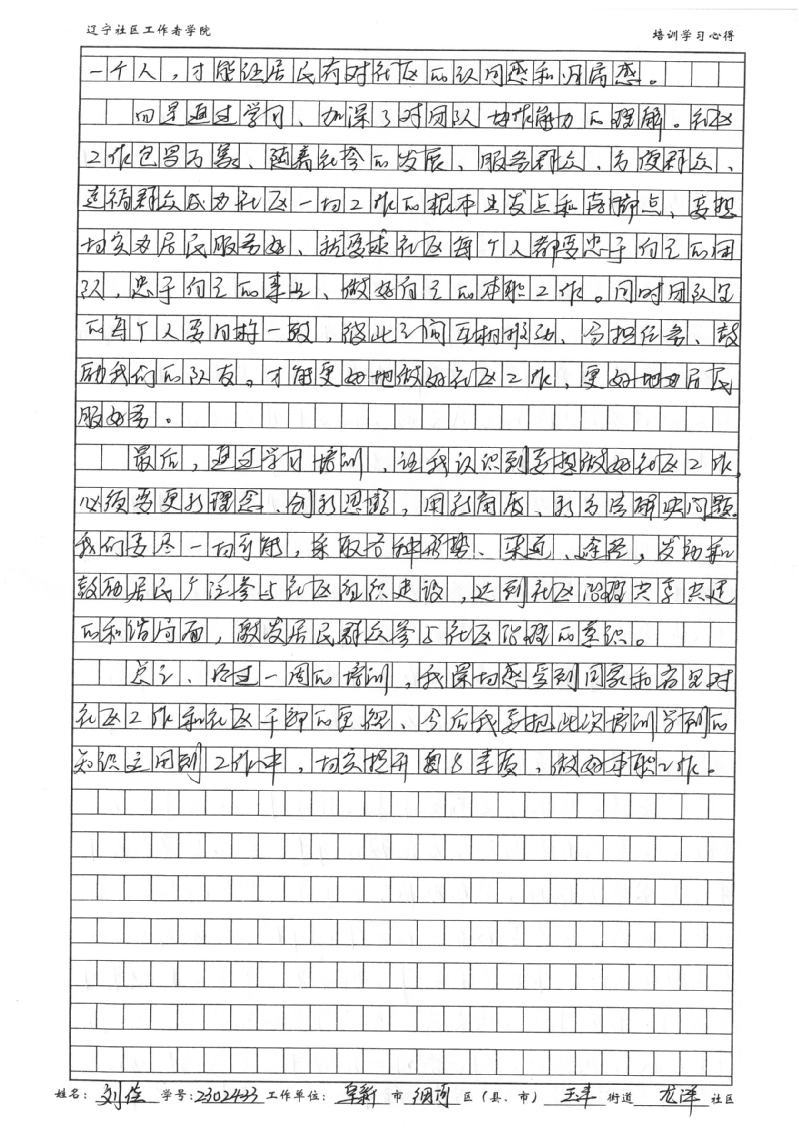 辽宁社区工作者学院 培训学习心得
一个人，才能让居民有对社区的认同感和归属感。
四是通过学习、加深了对团队协作能力的理解。社区
工作包罗万象、随着社会的发展、服务群众、方便群众、
连循群众成为社区一切工作的根本出发点和落脚点、要想
切实为居民服务好、就要求社区每个人都要忠于自己的团
队，忠于自己的事业、做好自己的本职工作。同时团队里
的每个人要目标一致，彼此之间互相推动、分担任务、鼓
励我们的队友。才能更好地做好社区工作，更好地为居民
服好务。
最后，通过学习培训，让我认识到要想做好社区工作，
必须要更新理念、创新思路，用新角度、新方法解决问题。
我们要尽一切可能，采取各种形势、渠道、途径，发动和
鼓励居民广泛参与社区组织建设，达到社区治理共享共建
的和谐局面，激发居民群众参与社区治理的意识。
总之、经过一周的培训，我深切感受到国家和省里对
社区工作和社区干部的重视、今后我要把此次培训学到的
知识应用到工作中，切实提升自身素质，做好本职工作。
姓名：刘佳 学号：2302433 工作单位：阜新 市 细河 区（县、市） 玉丰 街道 龙泽 社区